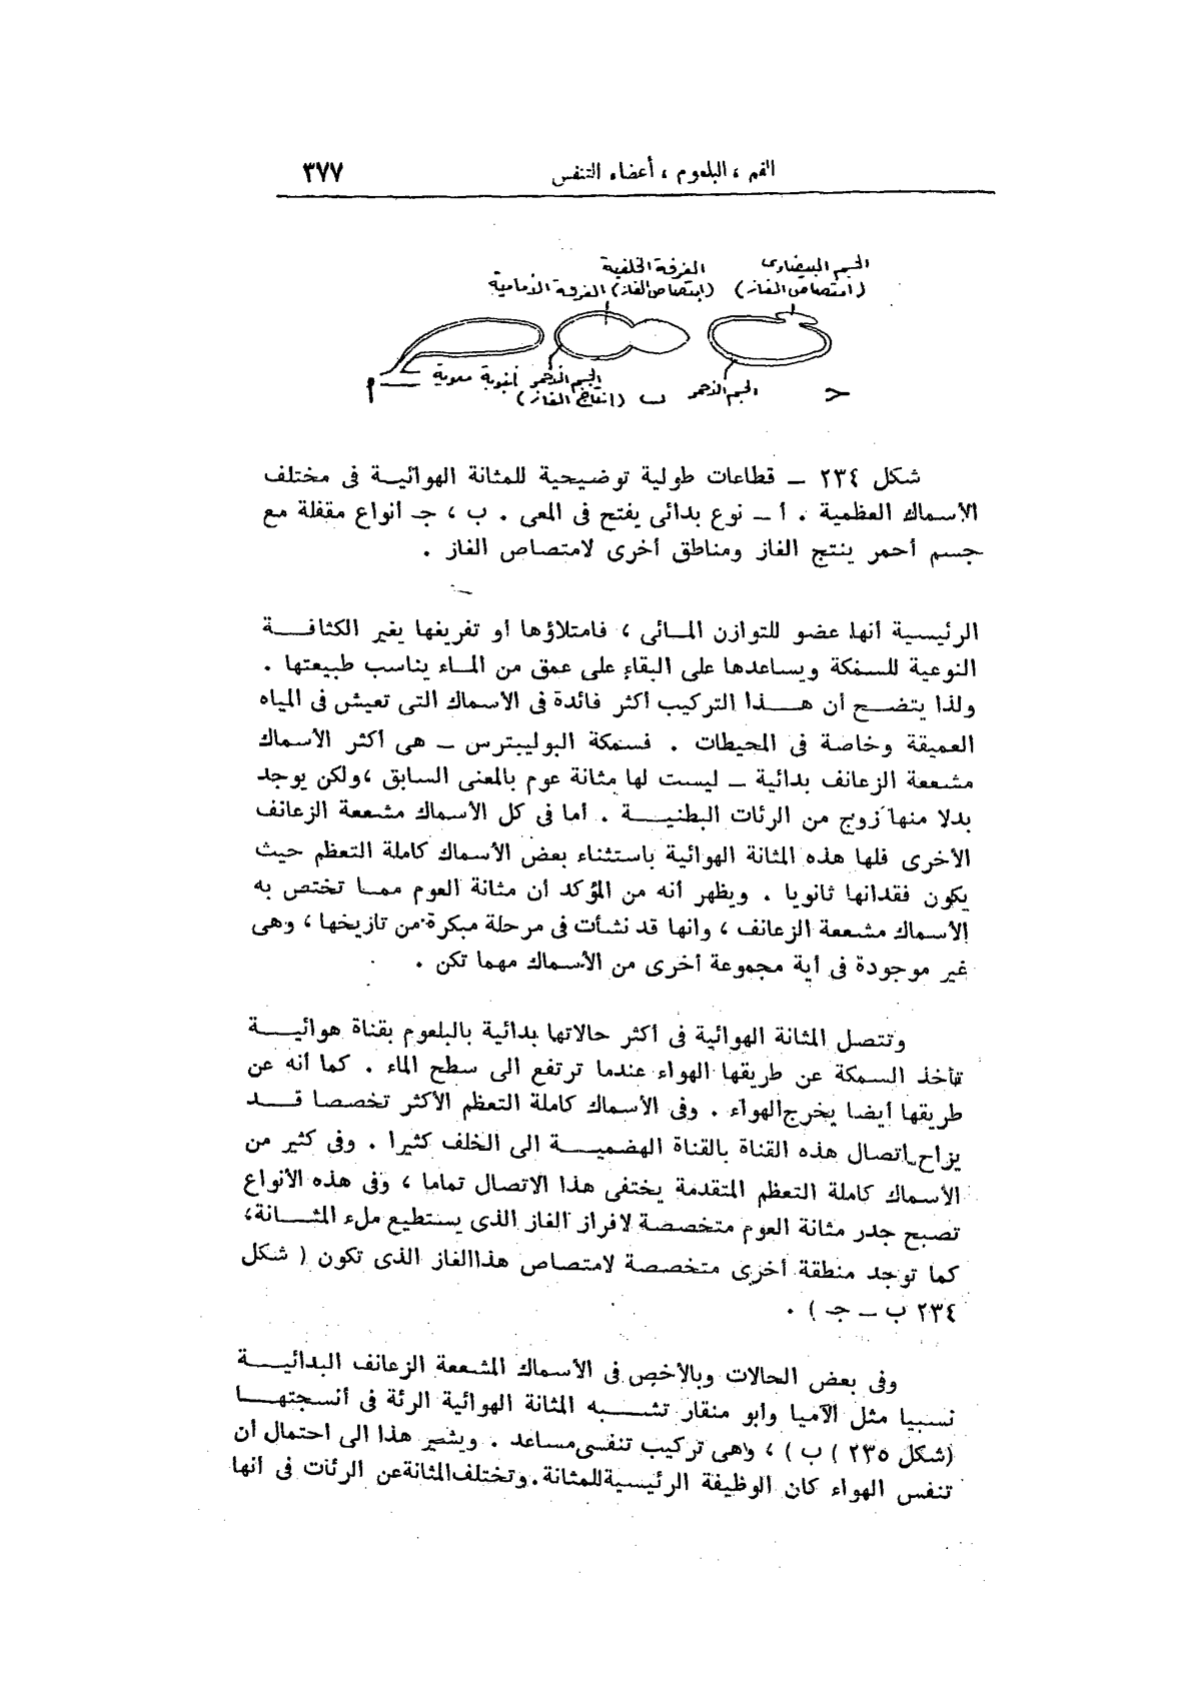 الفم ، البلعوم ، أعضاء التنفس ٣٧٧
الجسم البيضاوى الغرفة الخلفية
(امتصاص الغاز) (امتصاص الغاز) الغرفة الأمامية
الجسم الأحمر الجسم الأحمر أنبوبة معوية
ج ب (إنتاج الغاز) أ
شكل ٢٣٤ ــ قطاعات طولية توضيحية للمثانة الهوائيـة فى مختلف
الأسماك العظمية . أ ــ نوع بدائى يفتح فى المعى . ب ، جـ أنواع مقفلة مع
جسم أحمر ينتج الغاز ومناطق أخرى لامتصاص الغاز .
الرئيسية أنها عضو للتوازن المـائى ، فامتلاؤها أو تفريغها يغير الكثافـــة
النوعية للسمكة ويساعدها على البقاء على عمق من المـاء يناسب طبيعتها .
ولذا يتضـــح أن هـــذا التركيب أكثر فائدة فى الأسماك التى تعيش فى المياه
العميقة وخاصة فى المحيطات . فسمكة البوليبترس ــ هى أكثر الأسماك
مشععة الزعانف بدائية ــ ليست لها مثانة عوم بالمعنى السابق ،ولكن يوجد
بدلا منها زوج من الرئات البطنيـــة . أما فى كل الأسماك مشععة الزعانف
الأخرى فلها هذه المثانة الهوائية باستثناء بعض الأسماك كاملة التعظم حيث
يكون فقدانها ثانويا . ويظهر أنه من المؤكد أن مثانة العوم ممـا تختص به
الأسماك مشععة الزعانف ، وانها قد نشأت فى مرحلة مبكرة من تاريخها ، وهى
غير موجودة فى أية مجموعة أخرى من الأسماك مهما تكن .
وتتصل المثانة الهوائية فى أكثر حالاتها بدائية بالبلعوم بقناة هوائيـــة
تأخذ السمكة عن طريقها الهواء عندما ترتفع الى سطح الماء . كما أنه عن
طريقها أيضا يخرج الهواء . وفى الأسماك كاملة التعظم الأكثر تخصصا قـــد
يزاح اتصال هذه القناة بالقناة الهضميـــة الى الخلف كثيرا . وفى كثير من
الأسماك كاملة التعظم المتقدمة يختفى هذا الاتصال تماما ، وفى هذه الأنواع
تصبح جدر مثانة العوم متخصصة لافراز الغاز الذى يستطيع ملء المثـــانة،
كما توجد منطقة أخرى متخصصة لامتصاص هذاالغاز الذى تكون ( شكل
٢٣٤ ب ــ جـ ) .
وفى بعض الحالات وبالأخص فى الأسماك المشععة الزعانف البدائيـــة
نسبيا مثل الآميا وأبو منقار تشـــبه المثانة الهوائية الرئة فى أنسجتهـــا
(شكل ٢٣٥ ) ب ) ، وهى تركيب تنفسى مساعد . ويشير هذا الى احتمال أن
تنفس الهواء كان الوظيفة الرئيسية للمثانة . وتختلف المثانة عن الرئات فى أنها